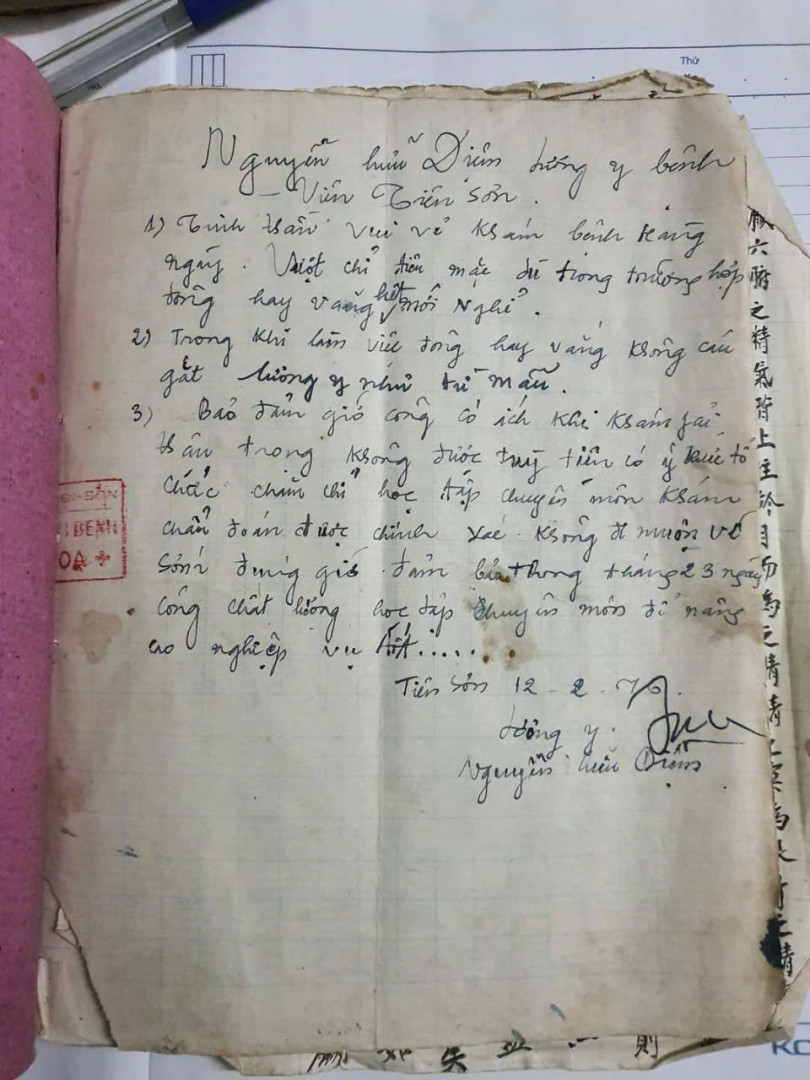 Thứ
Nguyễn hữu Diên lương y bệnh
- Viên Tiên Sơn.
1) Tinh thần vui vẻ khám bệnh hàng
ngày. Vượt chỉ tiêu mặc dù trong trường hợp
đông hay vắng hết mới nghỉ.
2) Trong khi làm việc đông hay vắng không cáu
gắt lương y như từ mẫu.
3) Bảo đảm giờ công có ích khi khám phải
thận trọng không được tuỳ tiện có ý thức tổ
chức chăm chỉ học tập chuyên môn khám
chẩn đoán được chính xác. Không đi muộn về
sớm đúng giờ. đảm bảo trong tháng 23 ngày
công chất lượng học tập chuyên môn để nâng
cao nghiệp vụ tốt......
Tiên Sơn 12-2-76.
Lương y.
Nguyễn hữu Diên
BỆNH
OA
六腑之精氣皆上注於目而為之精精之窠為